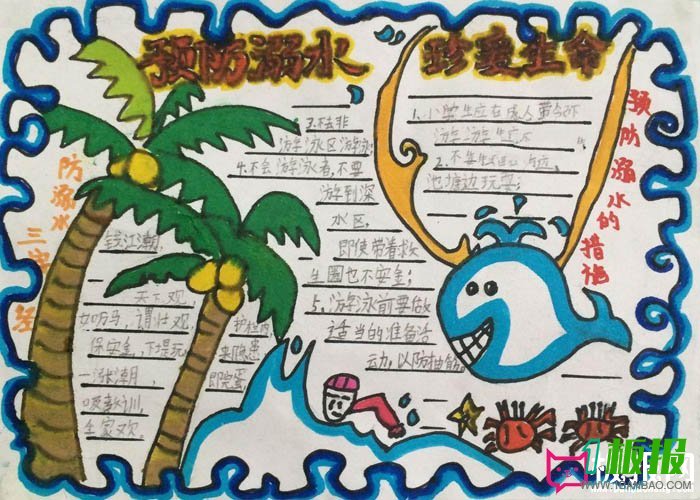 预防溺水 珍爱生命
预防溺水的措施
1、小学生应在成人
2、不要
池塘边玩耍;
3、不去非
游泳区游泳;
4、不会游泳者,不要
游到深
水区,
即使带着救
生圈也不安全;
5、游泳前要做
适当的准备活
动,以防抽筋。
防溺水三字经
钱江潮,
天下观,
如奔马,谓壮观,
保安全,下堤玩,
一涨潮,
全家欢。
护栏内
即完蛋。
板报
1BANBAO.COM